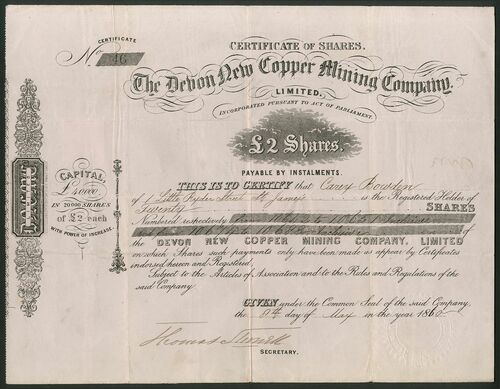 CERTIFICATE
No. 46
CERTIFICATE OF SHARES.
The Devon New Copper Mining Company.
LIMITED.
INCORPORATED PURSUANT TO ACT OF PARLIAMENT.
£2 Shares.
PAYABLE BY INSTALMENTS.
CAPITAL
£40000
IN 20000 SHARES
of £2 each
WITH POWER OF INCREASE.
THIS IS TO CERTIFY that Carey Bowden
of Little Ryder Street St James is the Registered Holder of
Twenty SHARES
Numbered respectively
of
the DEVON NEW COPPER MINING COMPANY, LIMITED
on which Shares such payments only have been made as appear by Certificates
indorsed hereon and Registered.
Subject to the Articles of Association and to the Rules and Regulations of the
said Company.
GIVEN under the Common Seal of the said Company,
the day of May in the year 186
Thomas
SECRETARY.